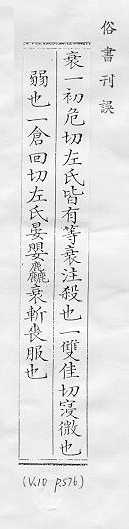 俗書刊誤
衰一初危切左氏皆有等衰注殺也一雙佳切寖微也
弱也一倉回切左氏晏嬰麤衰斬喪服也
(V.10 P.576)